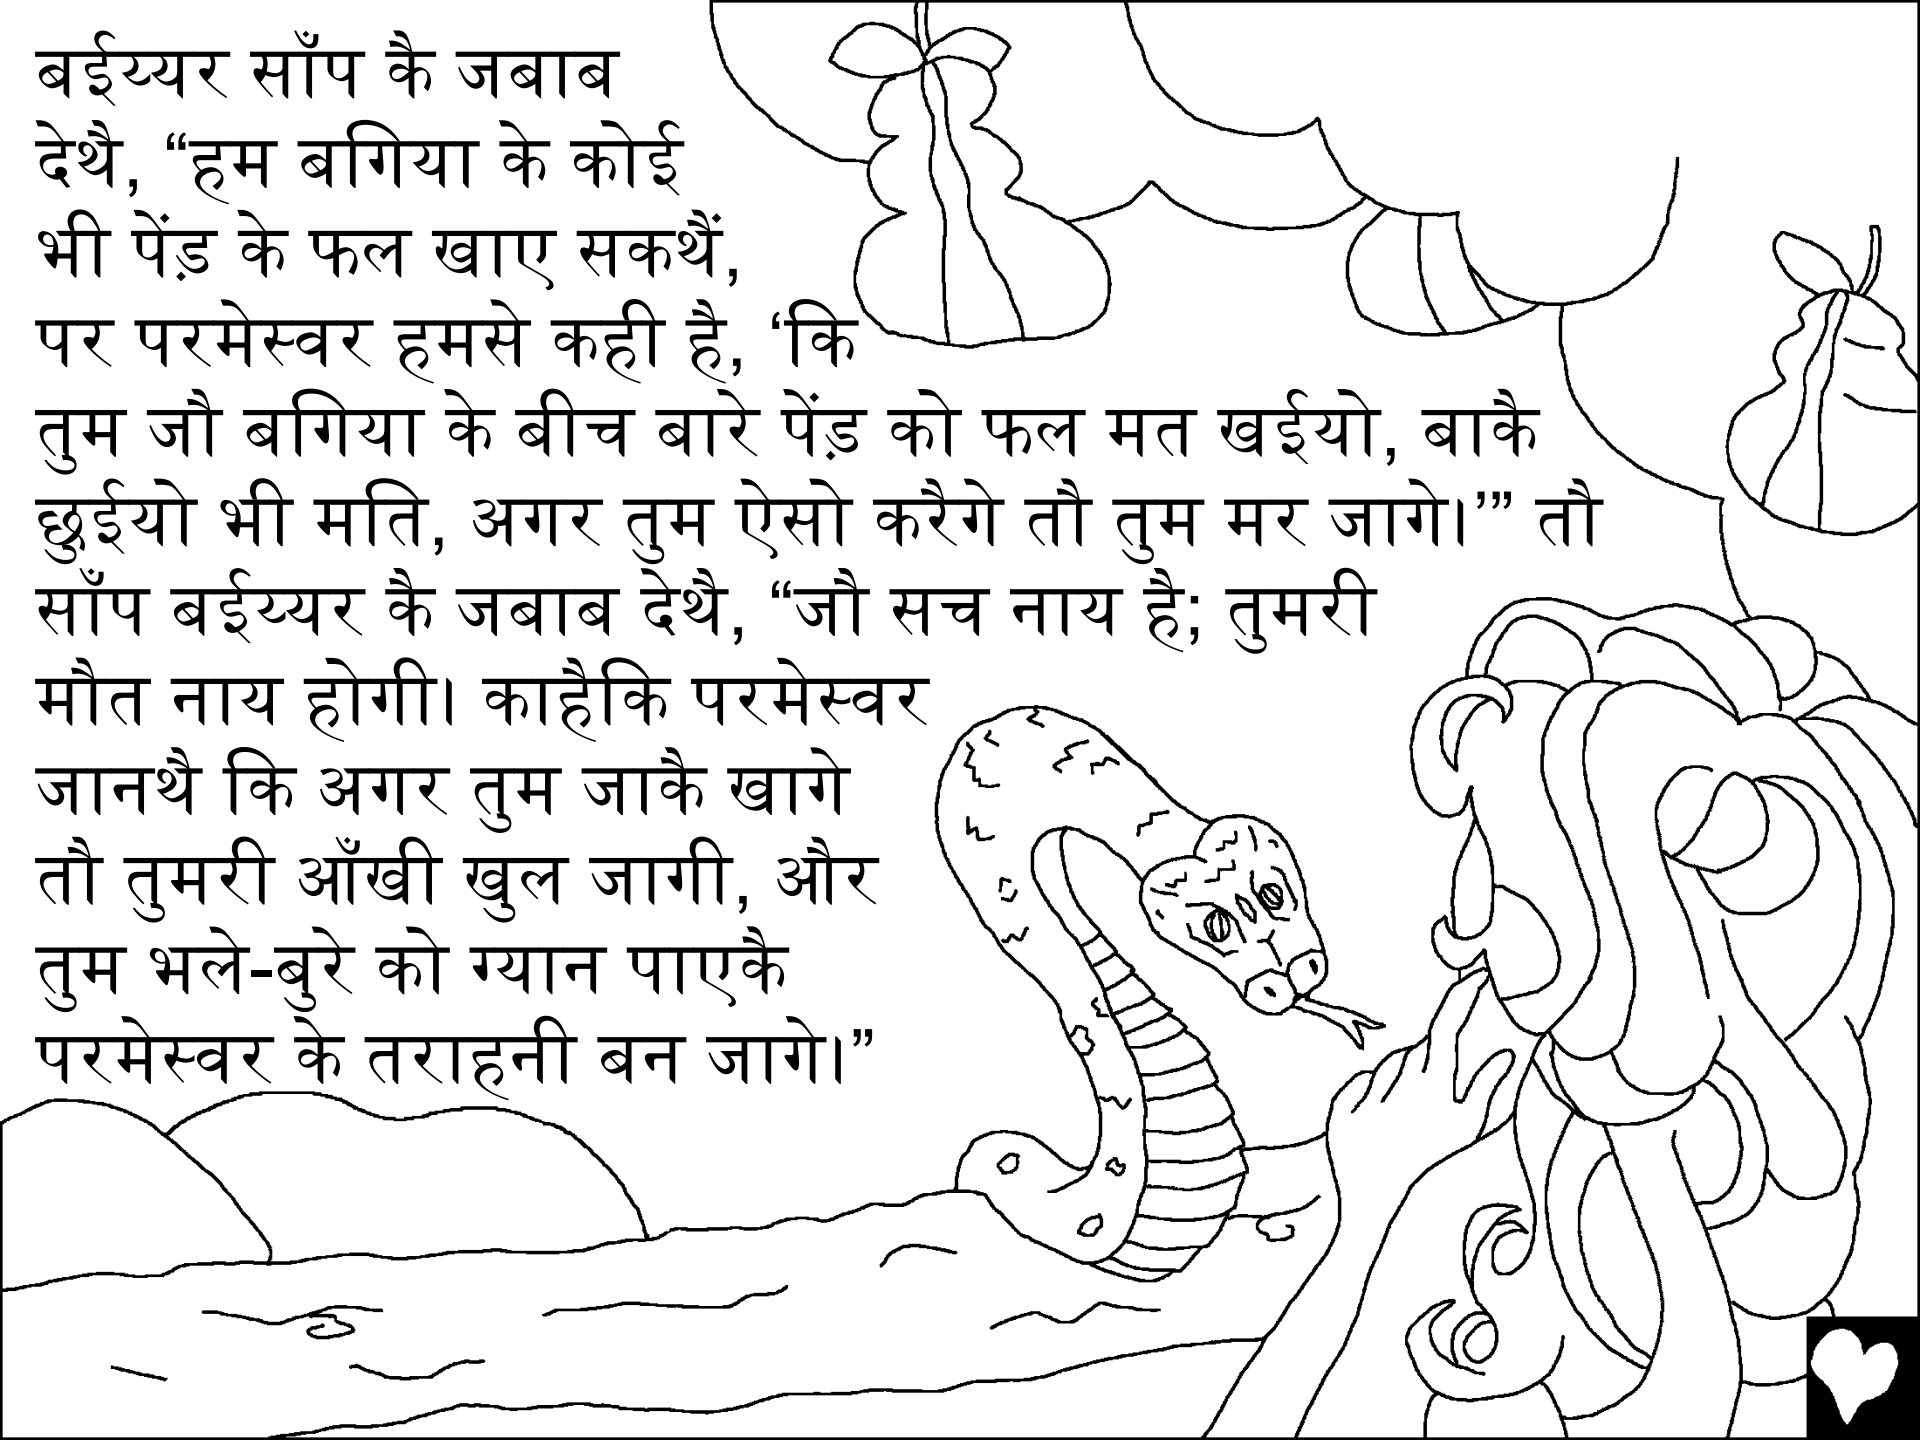 बईय्यर साँप कै जबाब
देथै, “हम बगिया के कोई
भी पेंड़ के फल खाए सकथैं,
पर परमेस्वर हमसे कही है, ‘कि
तुम जौ बगिया के बीच बारे पेंड़ को फल मत खईयो, बाकै
छुईयो भी मति, अगर तुम ऐसो करैगे तौ तुम मर जागे।’” तौ
साँप बईय्यर कै जबाब देथै, “जौ सच नाय है; तुमरी
मौत नाय होगी। काहैकि परमेस्वर
जानथै कि अगर तुम जाकै खागे
तौ तुमरी आँखी खुल जागी, और
तुम भले-बुरे को ग्यान पाएकै
परमेस्वर के तराहनी बन जागे।”